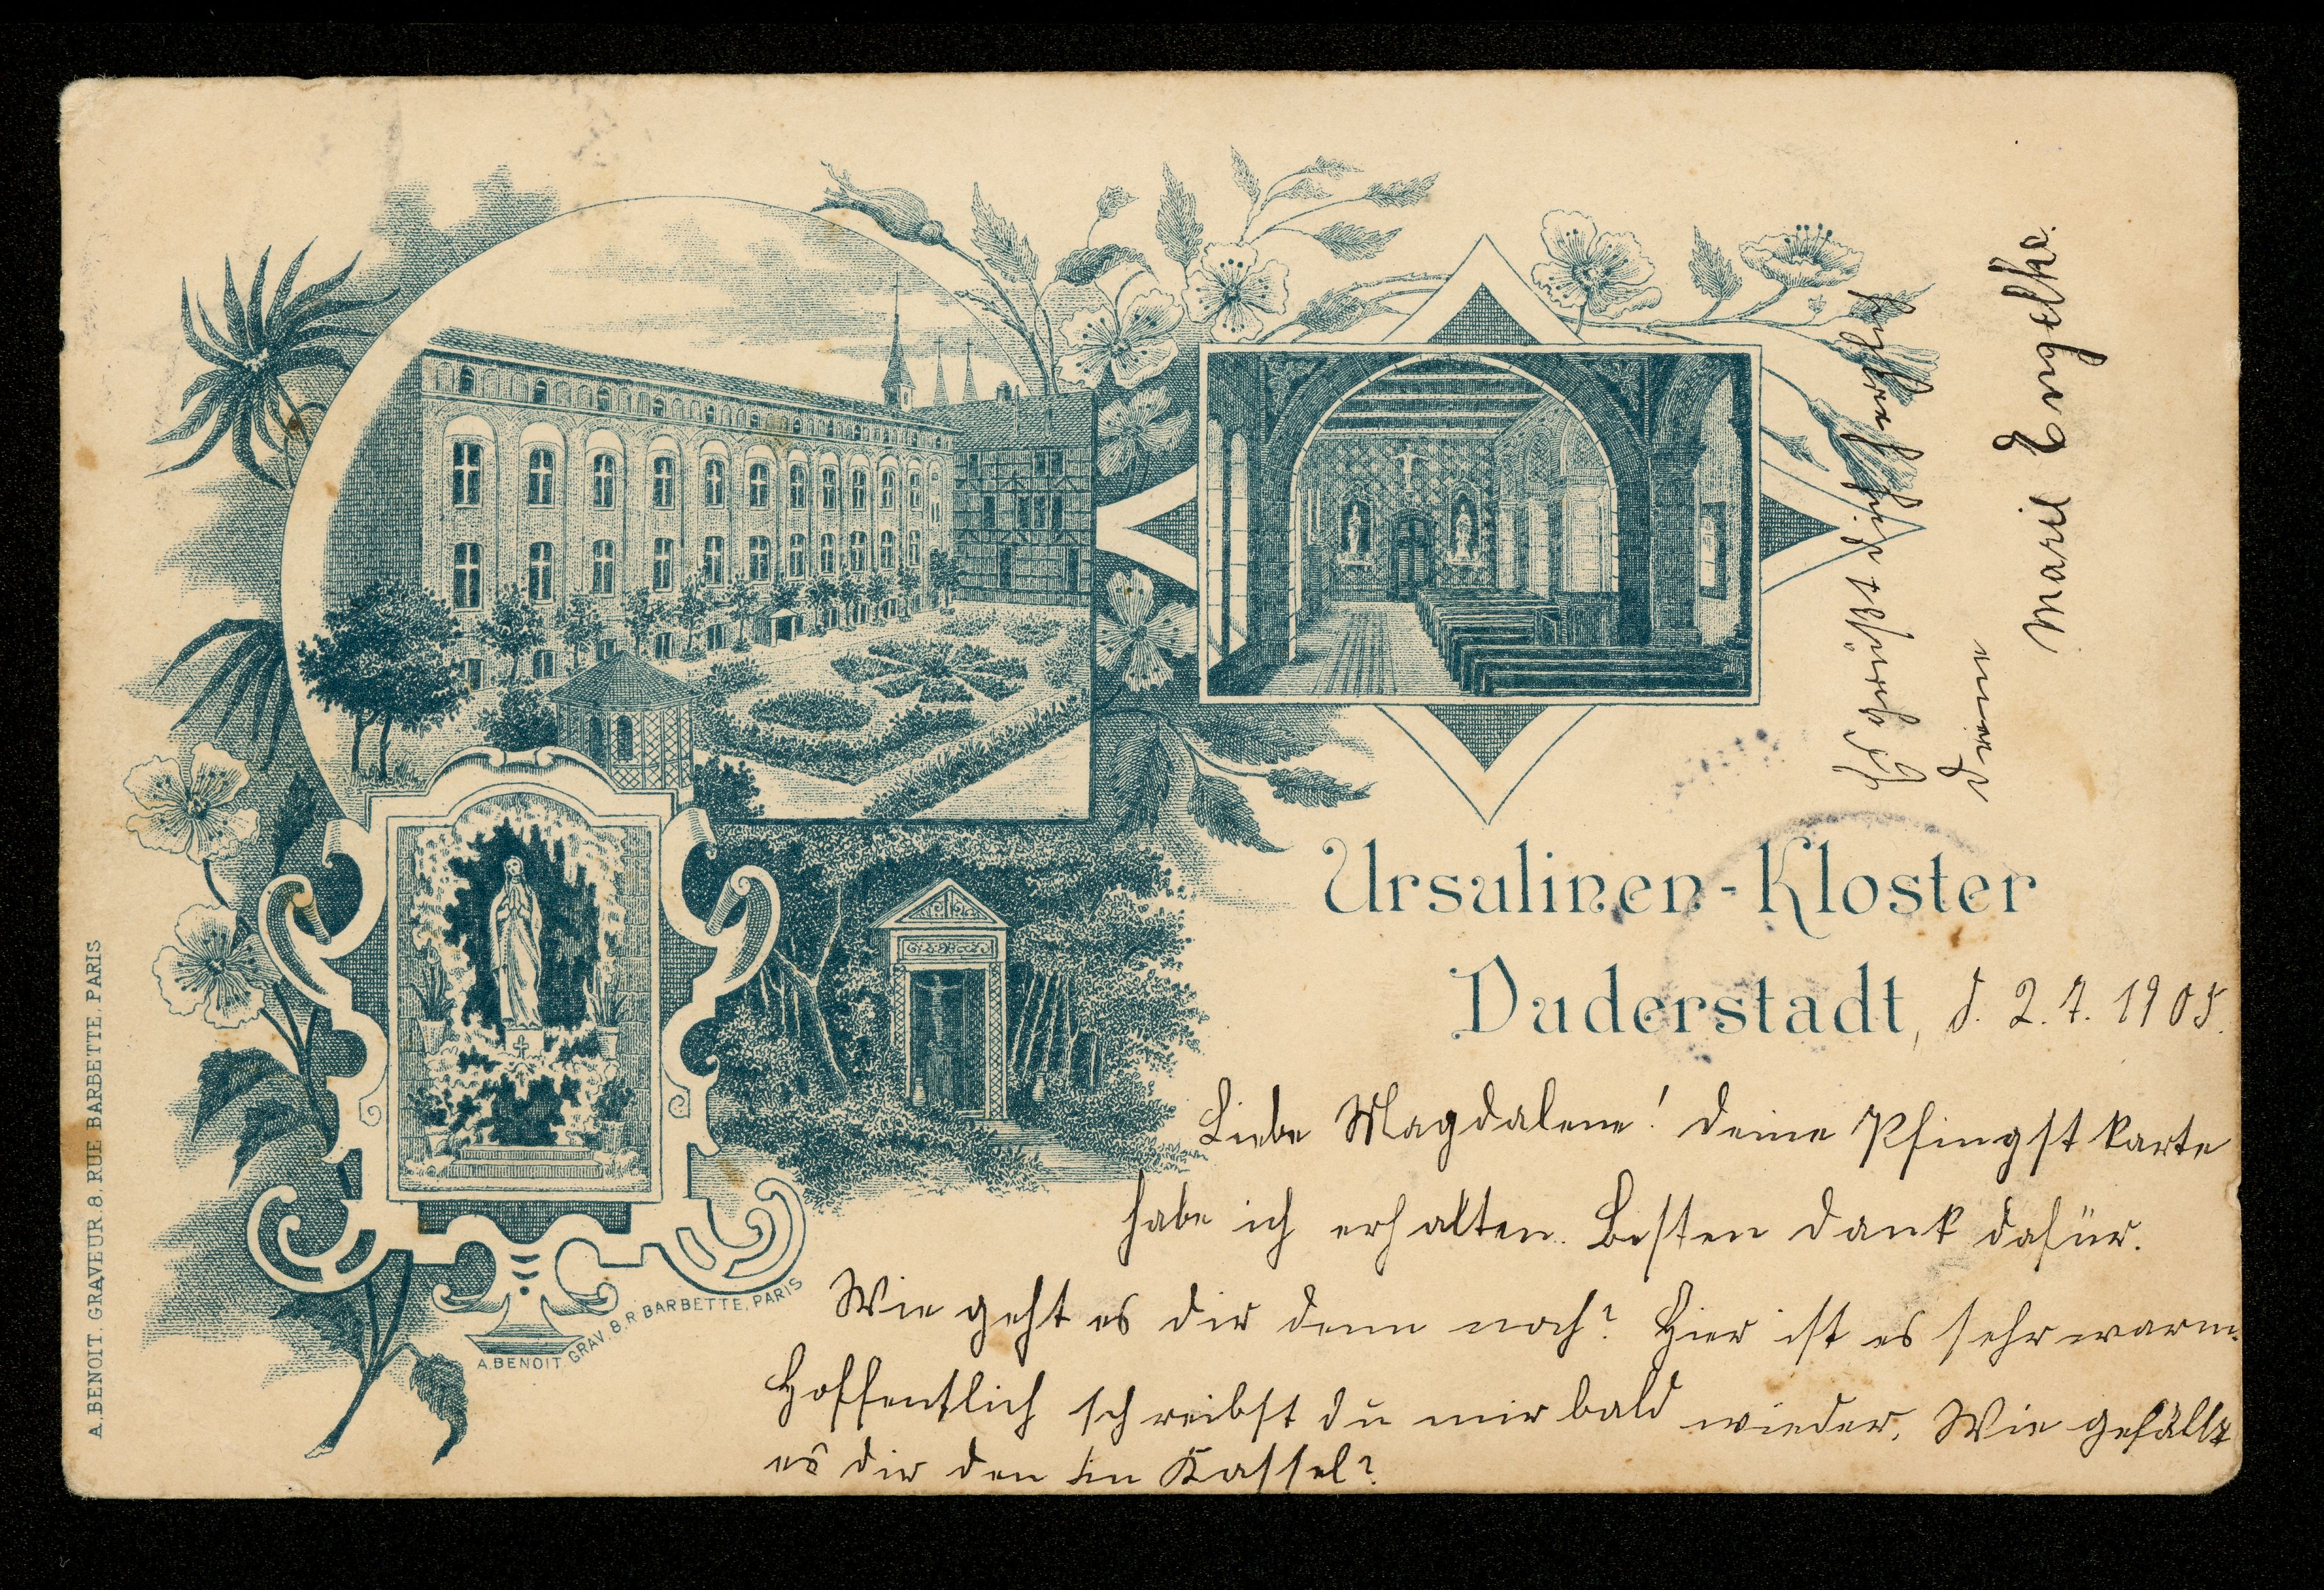 Ursulinen-Kloster
Duderstadt, d. 2.7.1905.
Liebe Magdalene! deine Pfingstkarte
habe ich erhalten. Besten dank dafür.
Wie geht es dir denn noch? Hier ist es sehr warm.
Hoffentlich schreibst du mir bald wieder. Wie gefällt
es dir den in Kassel?
Es grüßt dich herzlich
deine
Marie Engelke.
A. BENOIT. GRAV. 8. R. BARBETTE. PARIS
A. BENOIT. GRAVEUR. 8. RUE BARBETTE. PARIS